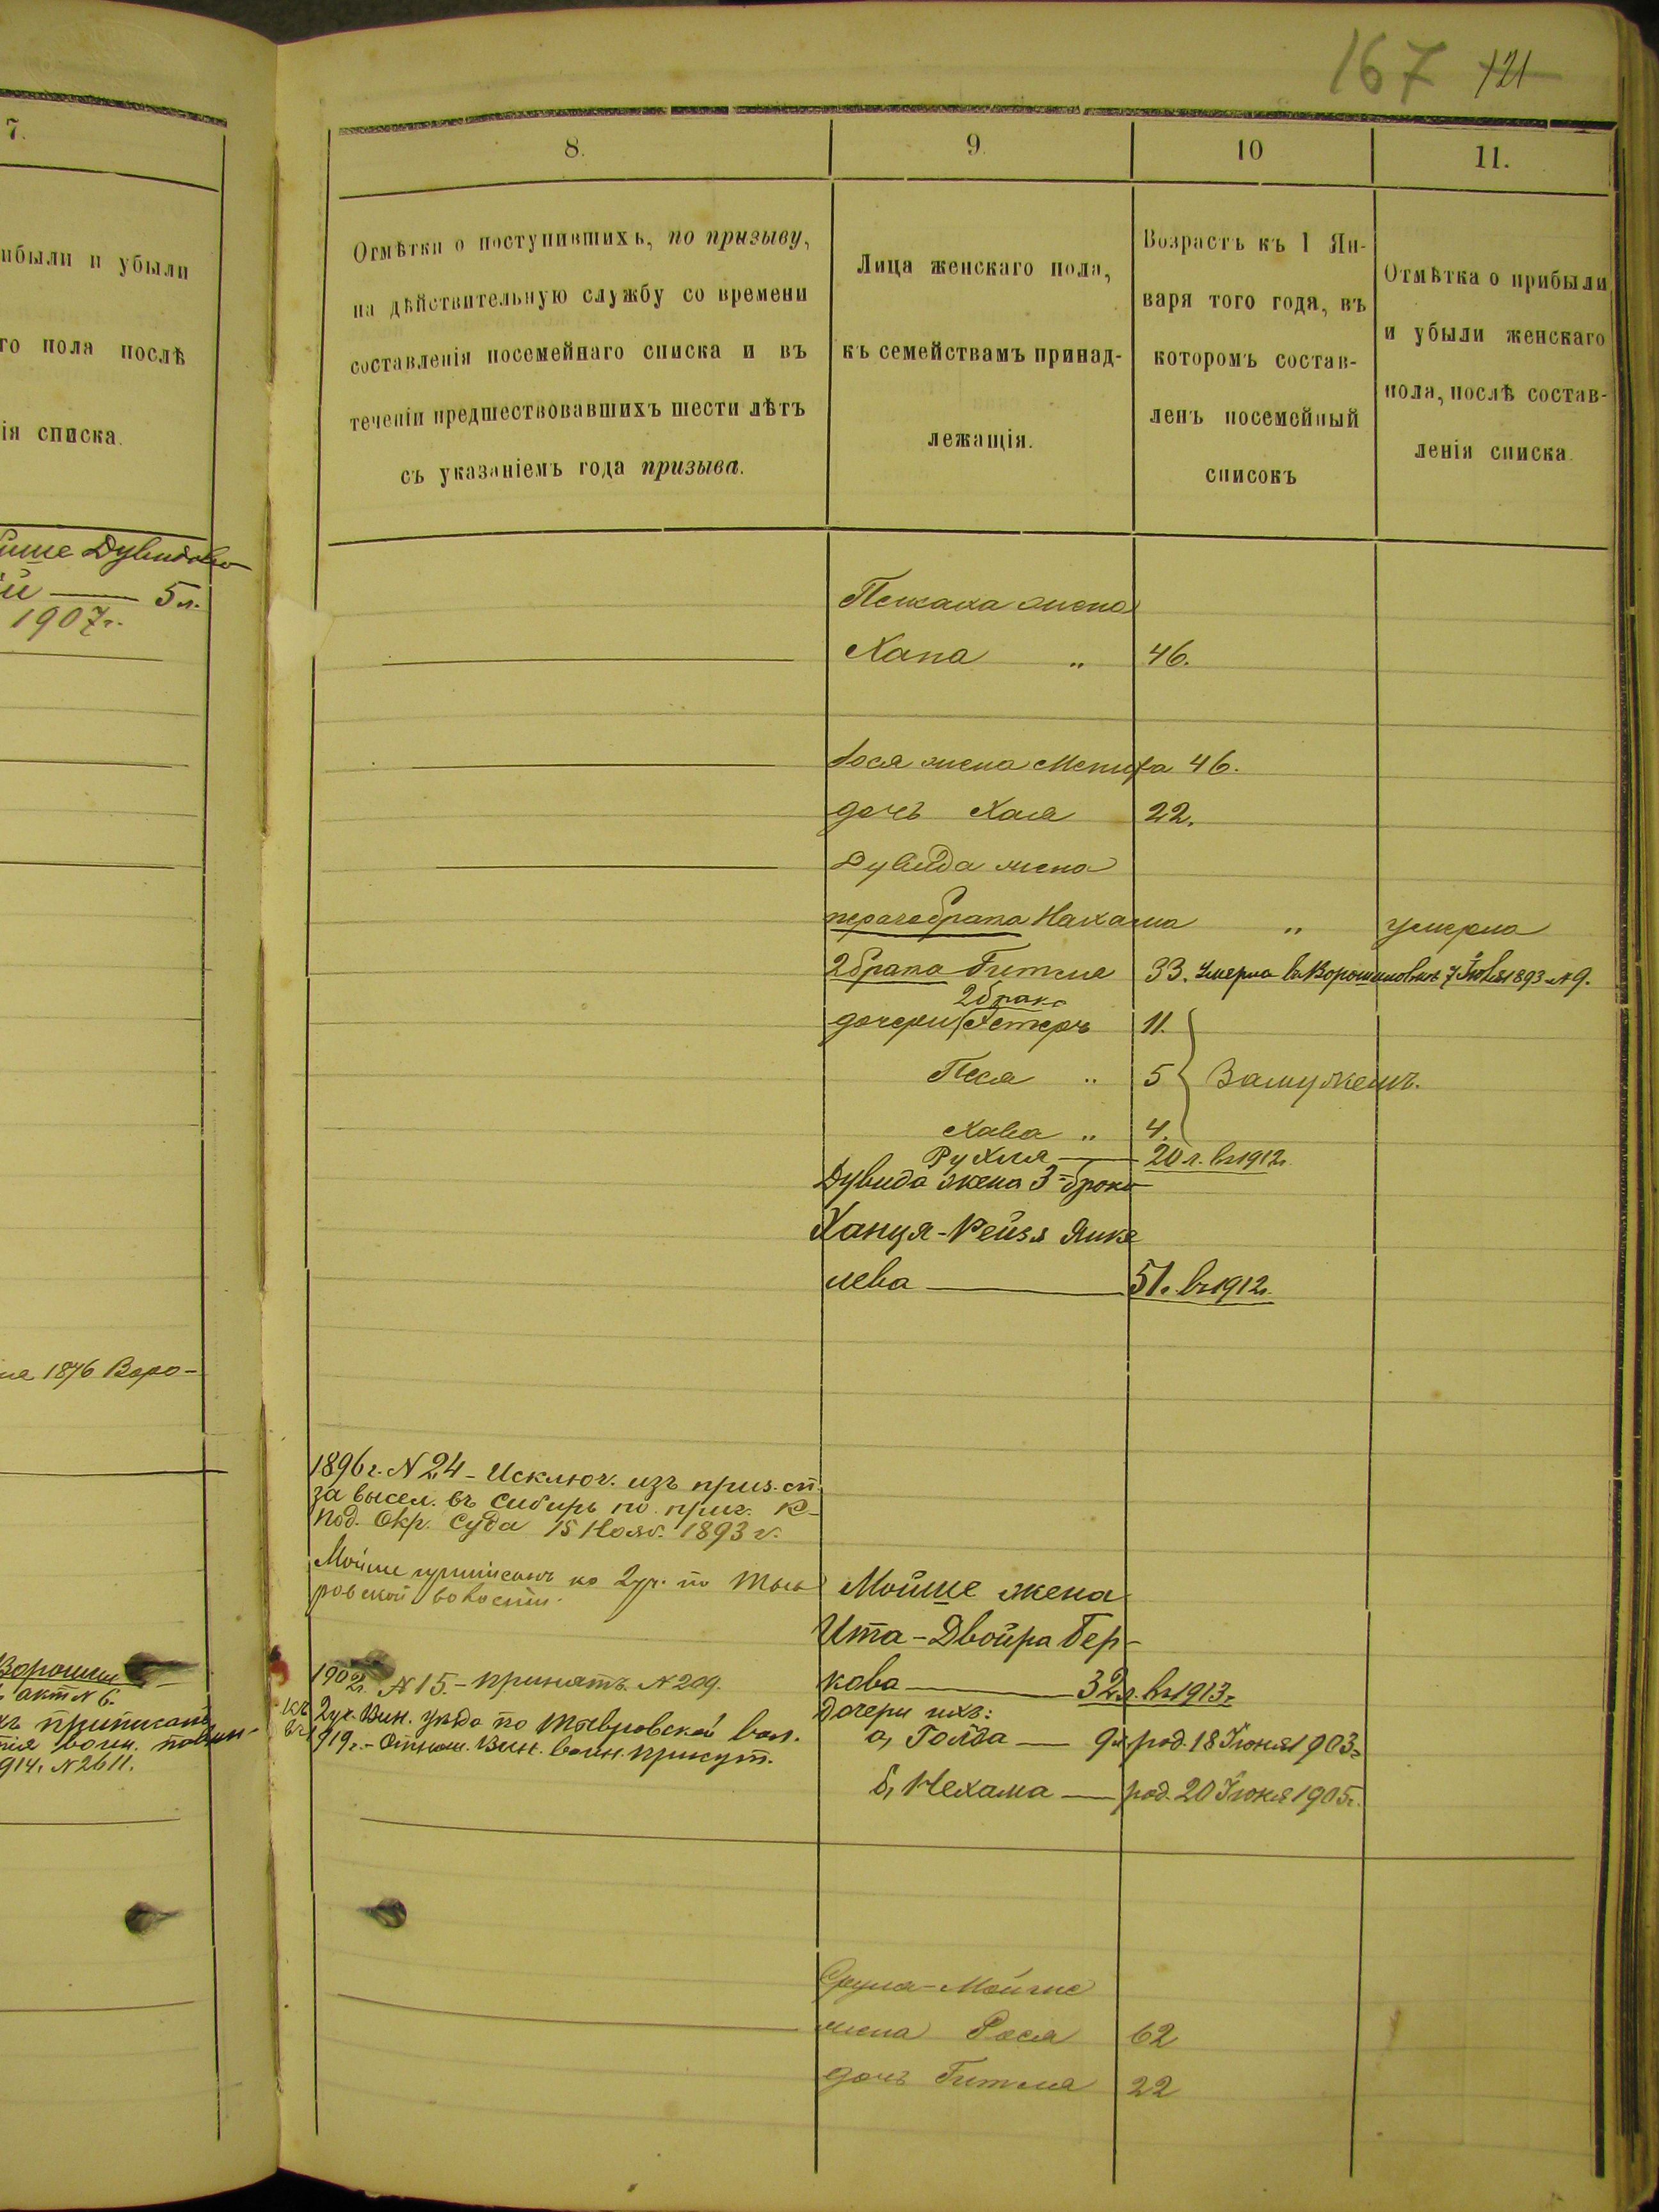 167 121
7.
ибыли и убыли
го пола послѣ
ія списка.
Дувидова
й — 5 л.
1907 г.
1876 Воро-
акт N 6.
приписанъ
воин.
914. N 2611.
8.
Отмѣтки о поступившихъ, по призыву,
на дѣйствительную службу со времени
составленія посемейнаго списка и въ
теченіи предшествовавшихъ шести лѣтъ
съ указаніемъ года призыва.
9.
Лица женскаго пола,
къ семействамъ принад-
лежащія.
10
Возрастъ къ 1 Ян-
варя того года, въ
которомъ состав-
ленъ посемейный
списокъ
11.
Отмѣтка о прибыли
и убыли женскаго
пола, послѣ состав-
ленія списка.
жена
Хана „ 46.
жена 46.
дочь Хая 22.
Дувида жена
перваго брака Нахама „ умерла
2 брака Гитля 33. Умерла 1893 N 9.
2 брака
дочери Эстеръ 11.
Песя „ 5 Замужемъ.
Хава „ 4.
Рухля — 20 л. въ 1912 г.
Дувида жена 3-брака
Ханця-Рейзя Янке
лева — 51. въ 1912 г.
1896 г. N 24 - Исключ. изъ приз. сп.
за высел. въ Сибирь по приг. К-
Под. Окр. Суда 15 Нояб. 1893 г.
Мойше приписанъ ко 2 уч. по
ровской волости.
Мойше жена
Ита-Двойра Бер-
кова — 32 л. въ 1913 г.
1902 г. N 15. - принятъ N 209.
къ 2 уч. Вин. уѣзда по Тывровской вол.
въ 1919 г. - Отнош. Вин. воин. присут.
дочери ихъ:
а, Голда — 9 л. род. 18 Іюня 1903 г.
б, Нехама — род. 20 Іюня 1905 г.
Срула-Мойше
жена Рося 62
дочь Гитля 22